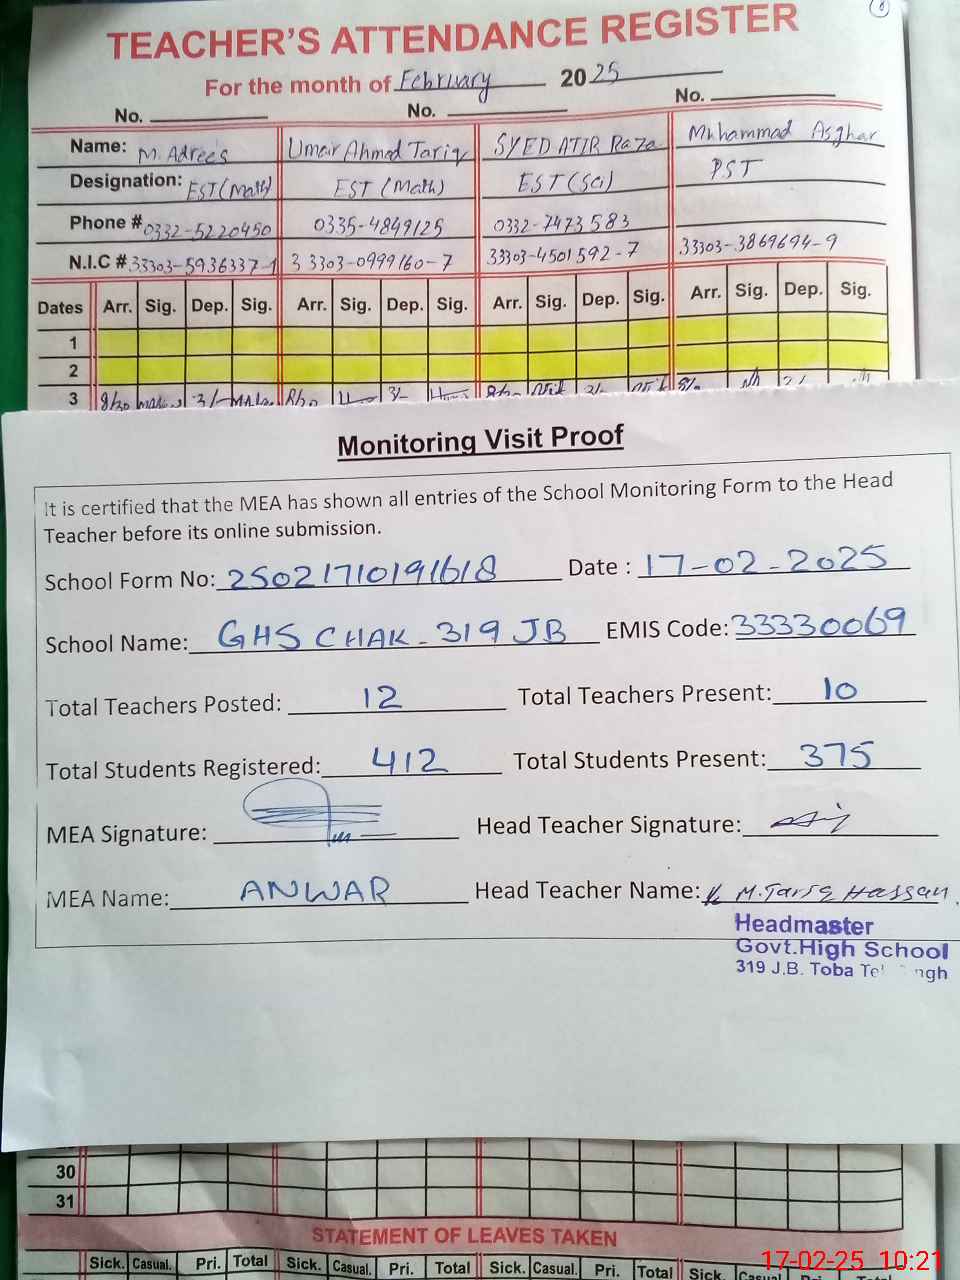 8
TEACHER'S ATTENDANCE REGISTER
For the month of February 2025
No. No. No.
Name: M. Adrees Umair Ahmed Tariq SYED ATIR Raza Muhammad Asghar
Designation: EST (Math) EST (Math) EST (Sci) PST
Phone # 0332-5220450 0335-4849125 0332-7473583
N.I.C # 33303-5936337-1 33303-0999160-7 33303-4501592-7 33303-3869694-9
Dates Arr. Sig. Dep. Sig. Arr. Sig. Dep. Sig. Arr. Sig. Dep. Sig. Arr. Sig. Dep. Sig.
1
2
3
Monitoring Visit Proof
It is certified that the MEA has shown all entries of the School Monitoring Form to the Head
Teacher before its online submission.
School Form No: 25021710191618 Date : 17-02-2025
School Name: GHS CHAK-319 JB EMIS Code: 33330069
Total Teachers Posted: 12 Total Teachers Present: 10
Total Students Registered: 412 Total Students Present: 375
MEA Signature: Head Teacher Signature:
MEA Name: ANWAR Head Teacher Name: M. Tariq Hassan.
Headmaster
Govt.High School
319 J.B. Toba
30
31
STATEMENT OF LEAVES TAKEN
Sick. Casual. Pri. Total Sick. Casual. Pri. Total Sick. Casual. Pri. Total Sick. Casual.
17-02-25 10:21